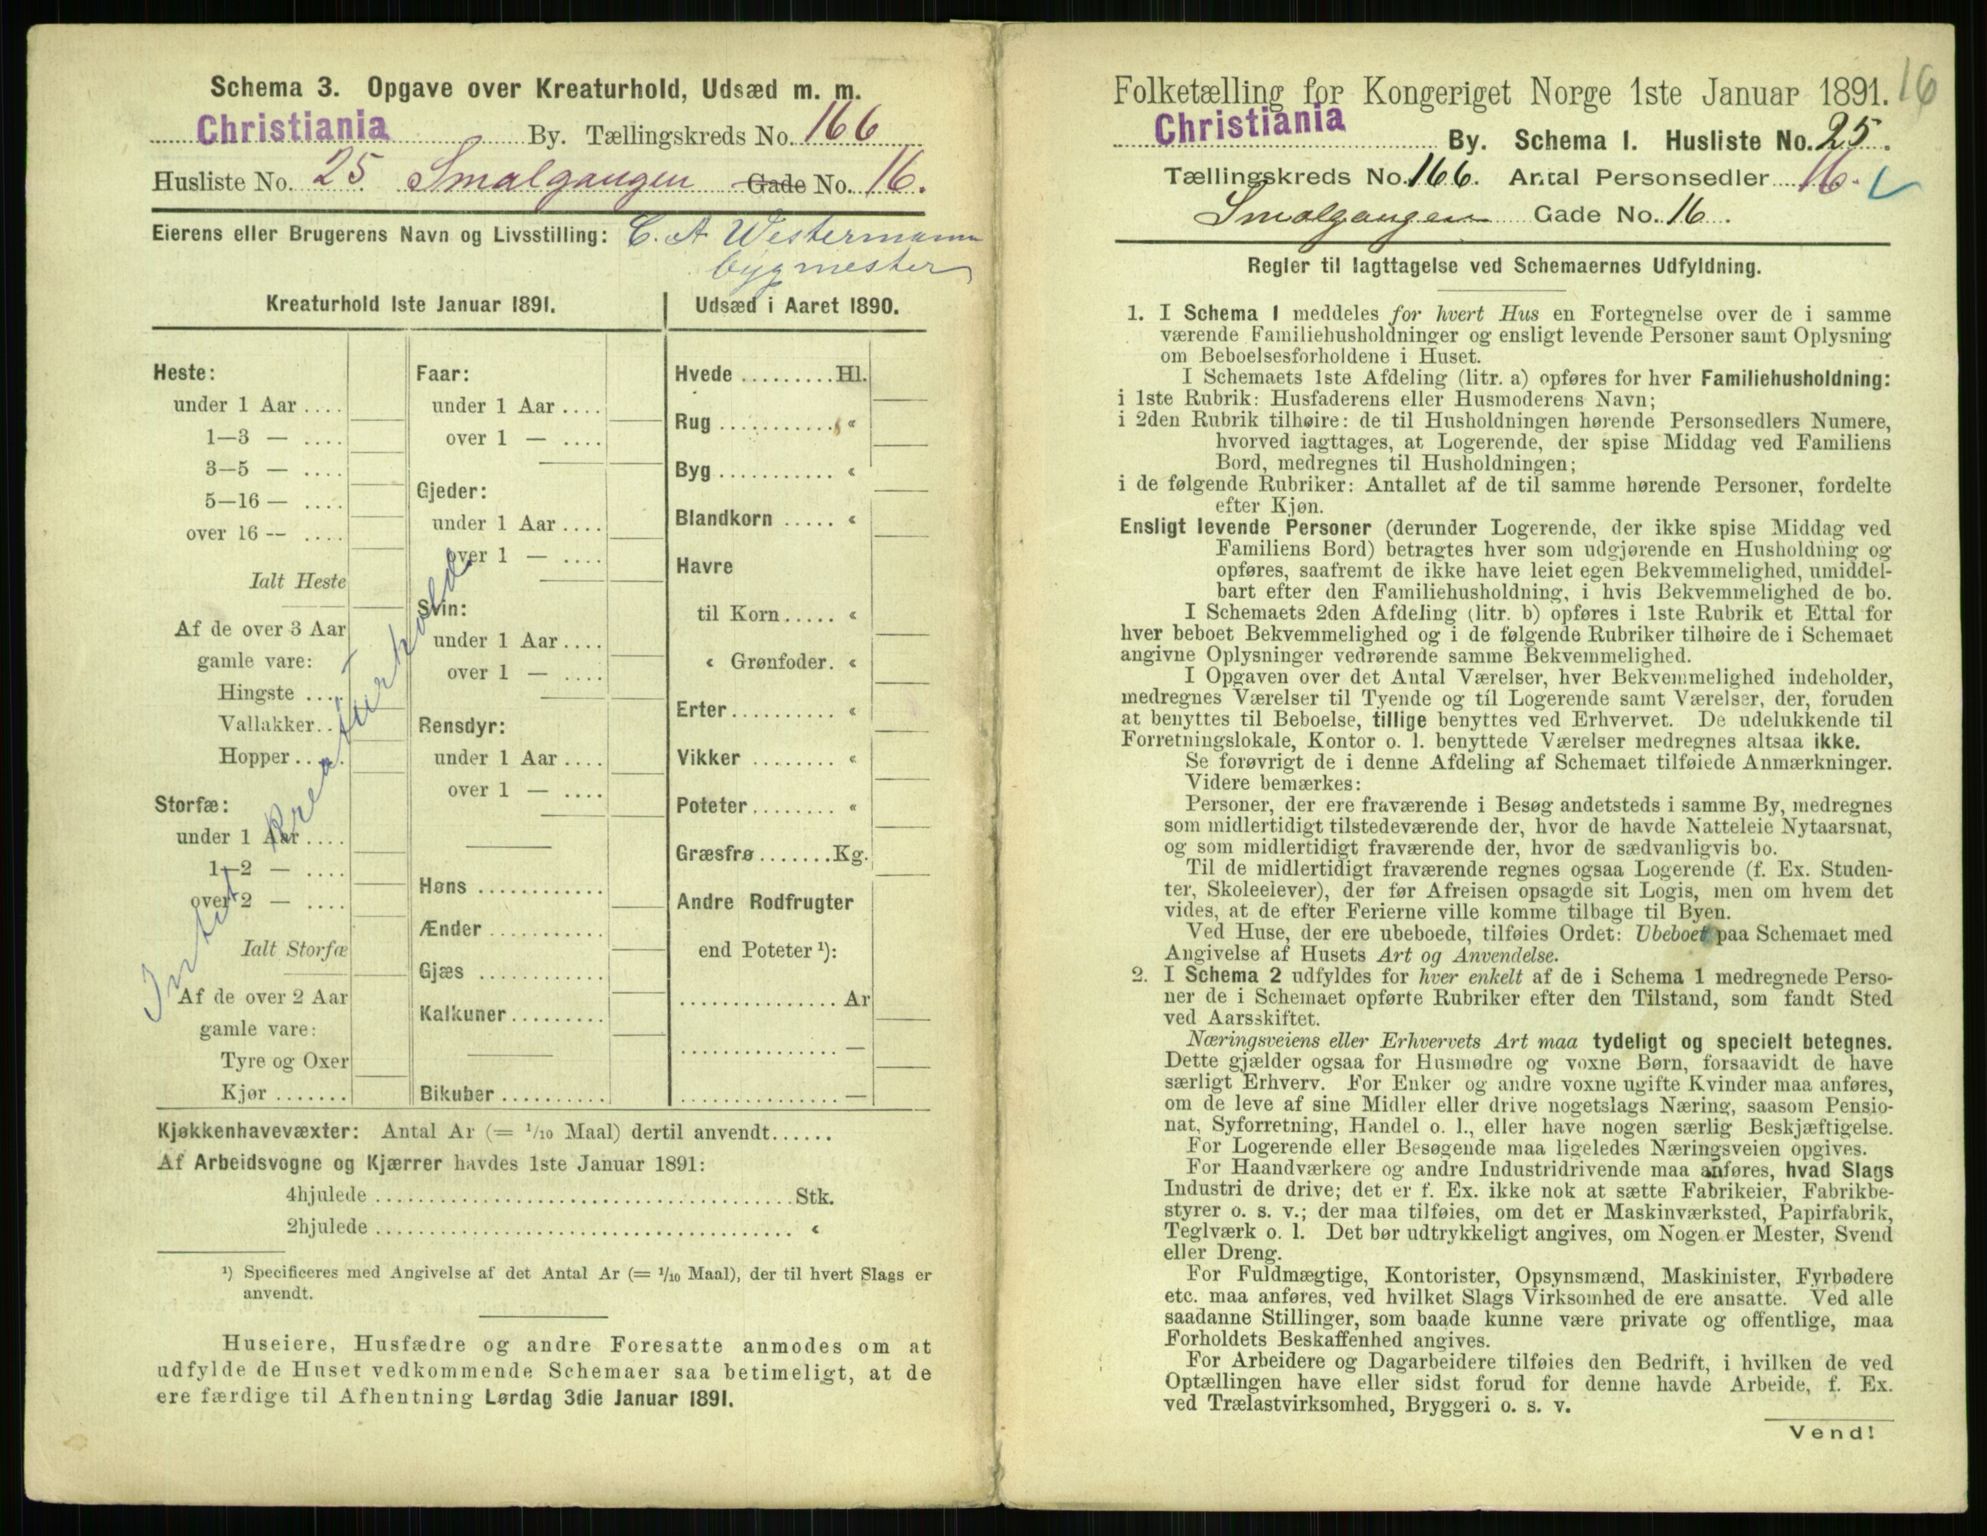 Schema 3. Opgave over Kreaturhold, Udsæd m. m.
Christiania By. Tællingskreds No. 166
Husliste No. 25 Smalgangen Gade No. 16.
Eierens eller Brugerens Navn og Livsstilling: C. A Westermann
bygmester
Kreaturhold 1ste Januar 1891.
Heste:
under 1 Aar ....
1—3 — ....
3—5 — ....
5—16 — ....
over 16 -- ....
Ialt Heste
Af de over 3 Aar
gamle vare:
Hingste ....
Vallakker..
Hopper....
Storfæ:
under 1 Aar....
1—2 — ....
over 2 — ....
Ialt Storfæ
Af de over 2 Aar
gamle vare:
Tyre og Oxer
Kjør .......
Intet Kreaturhold
Faar:
under 1 Aar ....
over 1 — ....
Gjeder:
under 1 Aar ....
over 1 — ....
Svin:
under 1 Aar....
over 1 — ....
Rensdyr:
under 1 Aar ....
over 1 — ....
Høns ............
Ænder ...........
Gjæs ............
Kalkuner.........
Bikuber ..........
Udsæd i Aaret 1890.
Hvede .........Hl.
Rug ........... «
Byg........... «
Blandkorn ..... «
Havre
til Korn..... «
« Grønfoder. «
Erter.......... «
Vikker ........ «
Poteter ....... «
Græsfrø.......Kg.
Andre Rodfrugter
end Poteter ¹):
............... Ar
............... —
............... —
Kjøkkenhavevæxter: Antal Ar (= 1/10 Maal) dertil anvendt......
Af Arbeidsvogne og Kjærrer havdes 1ste Januar 1891:
4hjulede ........................................Stk.
2hjulede ........................................ «
¹) Specificeres med Angivelse af det Antal Ar (= 1/10 Maal), der til hvert Slags er
anvendt.
Huseiere, Husfædre og andre Foresatte anmodes om at
udfylde de Huset vedkommende Schemaer saa betimeligt, at de
ere færdige til Afhentning Lørdag 3die Januar 1891.
Folketælling for Kongeriget Norge 1ste Januar 1891. 16
Christiania By. Schema I. Husliste No. 25.
Tællingskreds No. 166. Antal Personsedler 16.
Smalgangen Gade No. 16.
Regler til Iagttagelse ved Schemaernes Udfyldning.
1. I Schema 1 meddeles for hvert Hus en Fortegnelse over de i samme
værende Familiehusholdninger og ensligt levende Personer samt Oplysning
om Beboelsesforholdene i Huset.
I Schemaets 1ste Afdeling (litr. a) opføres for hver Familiehusholdning:
i 1ste Rubrik: Husfaderens eller Husmoderens Navn;
i 2den Rubrik tilhøire: de til Husholdningen hørende Personsedlers Numere,
hvorved iagttages, at Logerende, der spise Middag ved Familiens
Bord, medregnes til Husholdningen;
i de følgende Rubriker: Antallet af de til samme hørende Personer, fordelte
efter Kjøn.
Ensligt levende Personer (derunder Logerende, der ikke spise Middag ved
Familiens Bord) betragtes hver som udgjørende en Husholdning og
opføres, saafremt de ikke have leiet egen Bekvemmelighed, umiddel-
bart efter den Familiehusholdning, i hvis Bekvemmelighed de bo.
I Schemaets 2den Afdeling (litr. b) opføres i 1ste Rubrik et Ettal for
hver beboet Bekvemmelighed og i de følgende Rubriker tilhøire de i Schemaet
angivne Oplysninger vedrørende samme Bekvemmelighed.
I Opgaven over det Antal Værelser, hver Bekvemmelighed indeholder,
medregnes Værelser til Tyende og til Logerende samt Værelser, der, foruden
at benyttes til Beboelse, tillige benyttes ved Erhvervet. De udelukkende til
Forretningslokale, Kontor o. l. benyttede Værelser medregnes altsaa ikke.
Se forøvrigt de i denne Afdeling af Schemaet tilføiede Anmærkninger.
Videre bemærkes:
Personer, der ere fraværende i Besøg andetsteds i samme By, medregnes
som midlertidigt tilstedeværende der, hvor de havde Natteleie Nytaarsnat,
og som midlertidigt fraværende der, hvor de sædvanligvis bo.
Til de midlertidigt fraværende regnes ogsaa Logerende (f. Ex. Studen-
ter, Skoleelever), der før Afreisen opsagde sit Logis, men om hvem det
vides, at de efter Ferierne ville komme tilbage til Byen.
Ved Huse, der ere ubeboede, tilføies Ordet: Ubeboet paa Schemaet med
Angivelse af Husets Art og Anvendelse.
2. I Schema 2 udfyldes for hver enkelt af de i Schema 1 medregnede Perso-
ner de i Schemaet opførte Rubriker efter den Tilstand, som fandt Sted
ved Aarsskiftet.
Næringsveiens eller Erhvervets Art maa tydeligt og specielt betegnes.
Dette gjælder ogsaa for Husmødre og voxne Børn, forsaavidt de have
særligt Erhverv. For Enker og andre voxne ugifte Kvinder maa anføres,
om de leve af sine Midler eller drive nogetslags Næring, saasom Pensio-
nat, Syforretning, Handel o. l., eller have nogen særlig Beskjæftigelse.
For Logerende eller Besøgende maa ligeledes Næringsveien opgives.
For Haandværkere og andre Industridrivende maa anføres, hvad Slags
Industri de drive; det er f. Ex. ikke nok at sætte Fabrikeier, Fabrikbe-
styrer o. s. v.; der maa tilføies, om det er Maskinværksted, Papirfabrik,
Teglværk o. l. Det bør udtrykkeligt angives, om Nogen er Mester, Svend
eller Dreng.
For Fuldmægtige, Kontorister, Opsynsmænd, Maskinister, Fyrbødere
etc. maa anføres, ved hvilket Slags Virksomhed de ere ansatte. Ved alle
saadanne Stillinger, som baade kunne være private og offentlige, maa
Forholdets Beskaffenhed angives.
For Arbeidere og Dagarbeidere tilføies den Bedrift, i hvilken de ved
Optællingen have eller sidst forud for denne havde Arbeide, f. Ex.
ved Trælastvirksomhed, Bryggeri o. s. v.
Vend!